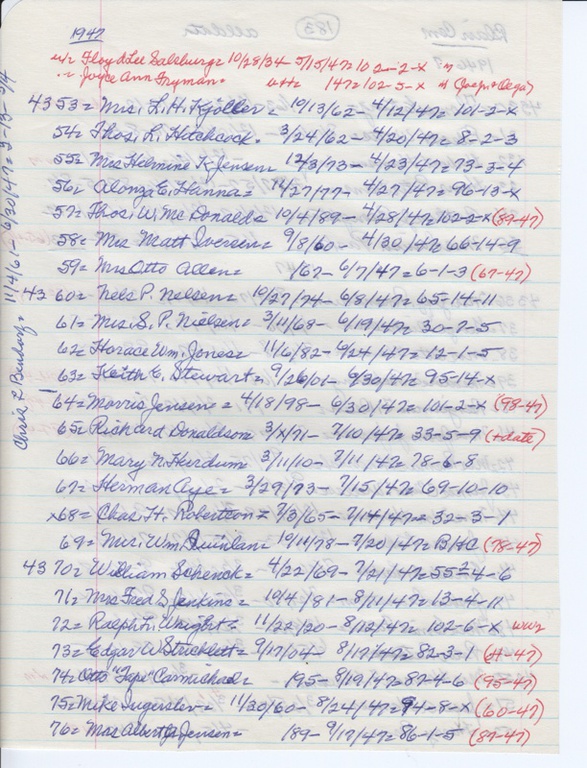 1947
w/r Floyd Lee Salsburg = 10/28/34 - 5/15/47 = 102-2-x
Joyce Ann Fryman = 147 = 102-5-x
4353 = Mrs. L. H. Kjoller = 10/13/62 - 4/12/47 = 101-2-x
54 = Thos. L. Hitchcock. 3/24/62 - 4/20/47 = 8-2-3
55 = Mrs Helmine K. Jensen 12/3/73 - 4/23/47 = 73-3-4
56 = Alonza E. Hanna = 10/27/77 - 4/27/47 = 96-13-x
57 = Thos. W. McDonald = 10/4/89 - 4/28/47 = 102-2-x (89-47)
58 = Mrs Matt Iversen = 9/8/60 - 4/30/47 = 66-14-9
59 = Mrs Otto Allen = /67 - 6/7/47 = 6-1-3 (67-47)
4360 = Nels P. Nelsen = 10/27/74 - 6/8/47 = 65-14-11
61 = Mrs. S. P. Nielsen = 3/11/68 - 6/19/47 = 30-7-5
62 = Horace Wm. Jones = 11/6/82 - 6/24/47 = 12-1-5
63 = Keith E. Stewart = 9/26/01 - 6/30/47 = 95-14-x
64 = Morris Jensen = 4/18/98 - 6/30/47 = 101-2-x (98-47)
65 = Richard Donaldson 3/x/71 - 7/10/47 = 33-5-9 (+date)
66 = Mary N. Hurdum = 3/11/10 - 7/11/47 = 78-6-8
67 = Herman Aye = 3/29/73 - 7/15/47 = 69-10-10
x68 = Chas. H. Robertson = 7/3/65 - 7/14/47 = 32-3-1
69 = Mrs. Wm. Quinlan = 10/11/78 - 7/20/47 = B/HC (78-47)
4370 = William Schenok = 4/22/69 - 7/21/47 = 55²-4-6
71 = Mrs Fred S. Jenkins = 10/4/81 - 8/11/47 = 13-4-11
72 = Ralph L. Wright = 11/22/20 - 8/12/47 = 102-6-x WW2
73 = Edgar W. Stricklett = 9/17/04 - 8/17/47 = 82-3-1
74 = Otto "Tope" Carmichael = 195 - 8/19/47 = 87-4-6 (95-47)
75 = Mike Ingerslev = 11/30/60 - 8/24/47 = 94-8-x (60-47)
76 = Mrs Albert J. Jensen = 189 - 9/17/47 = 86-1-5 (89-47)